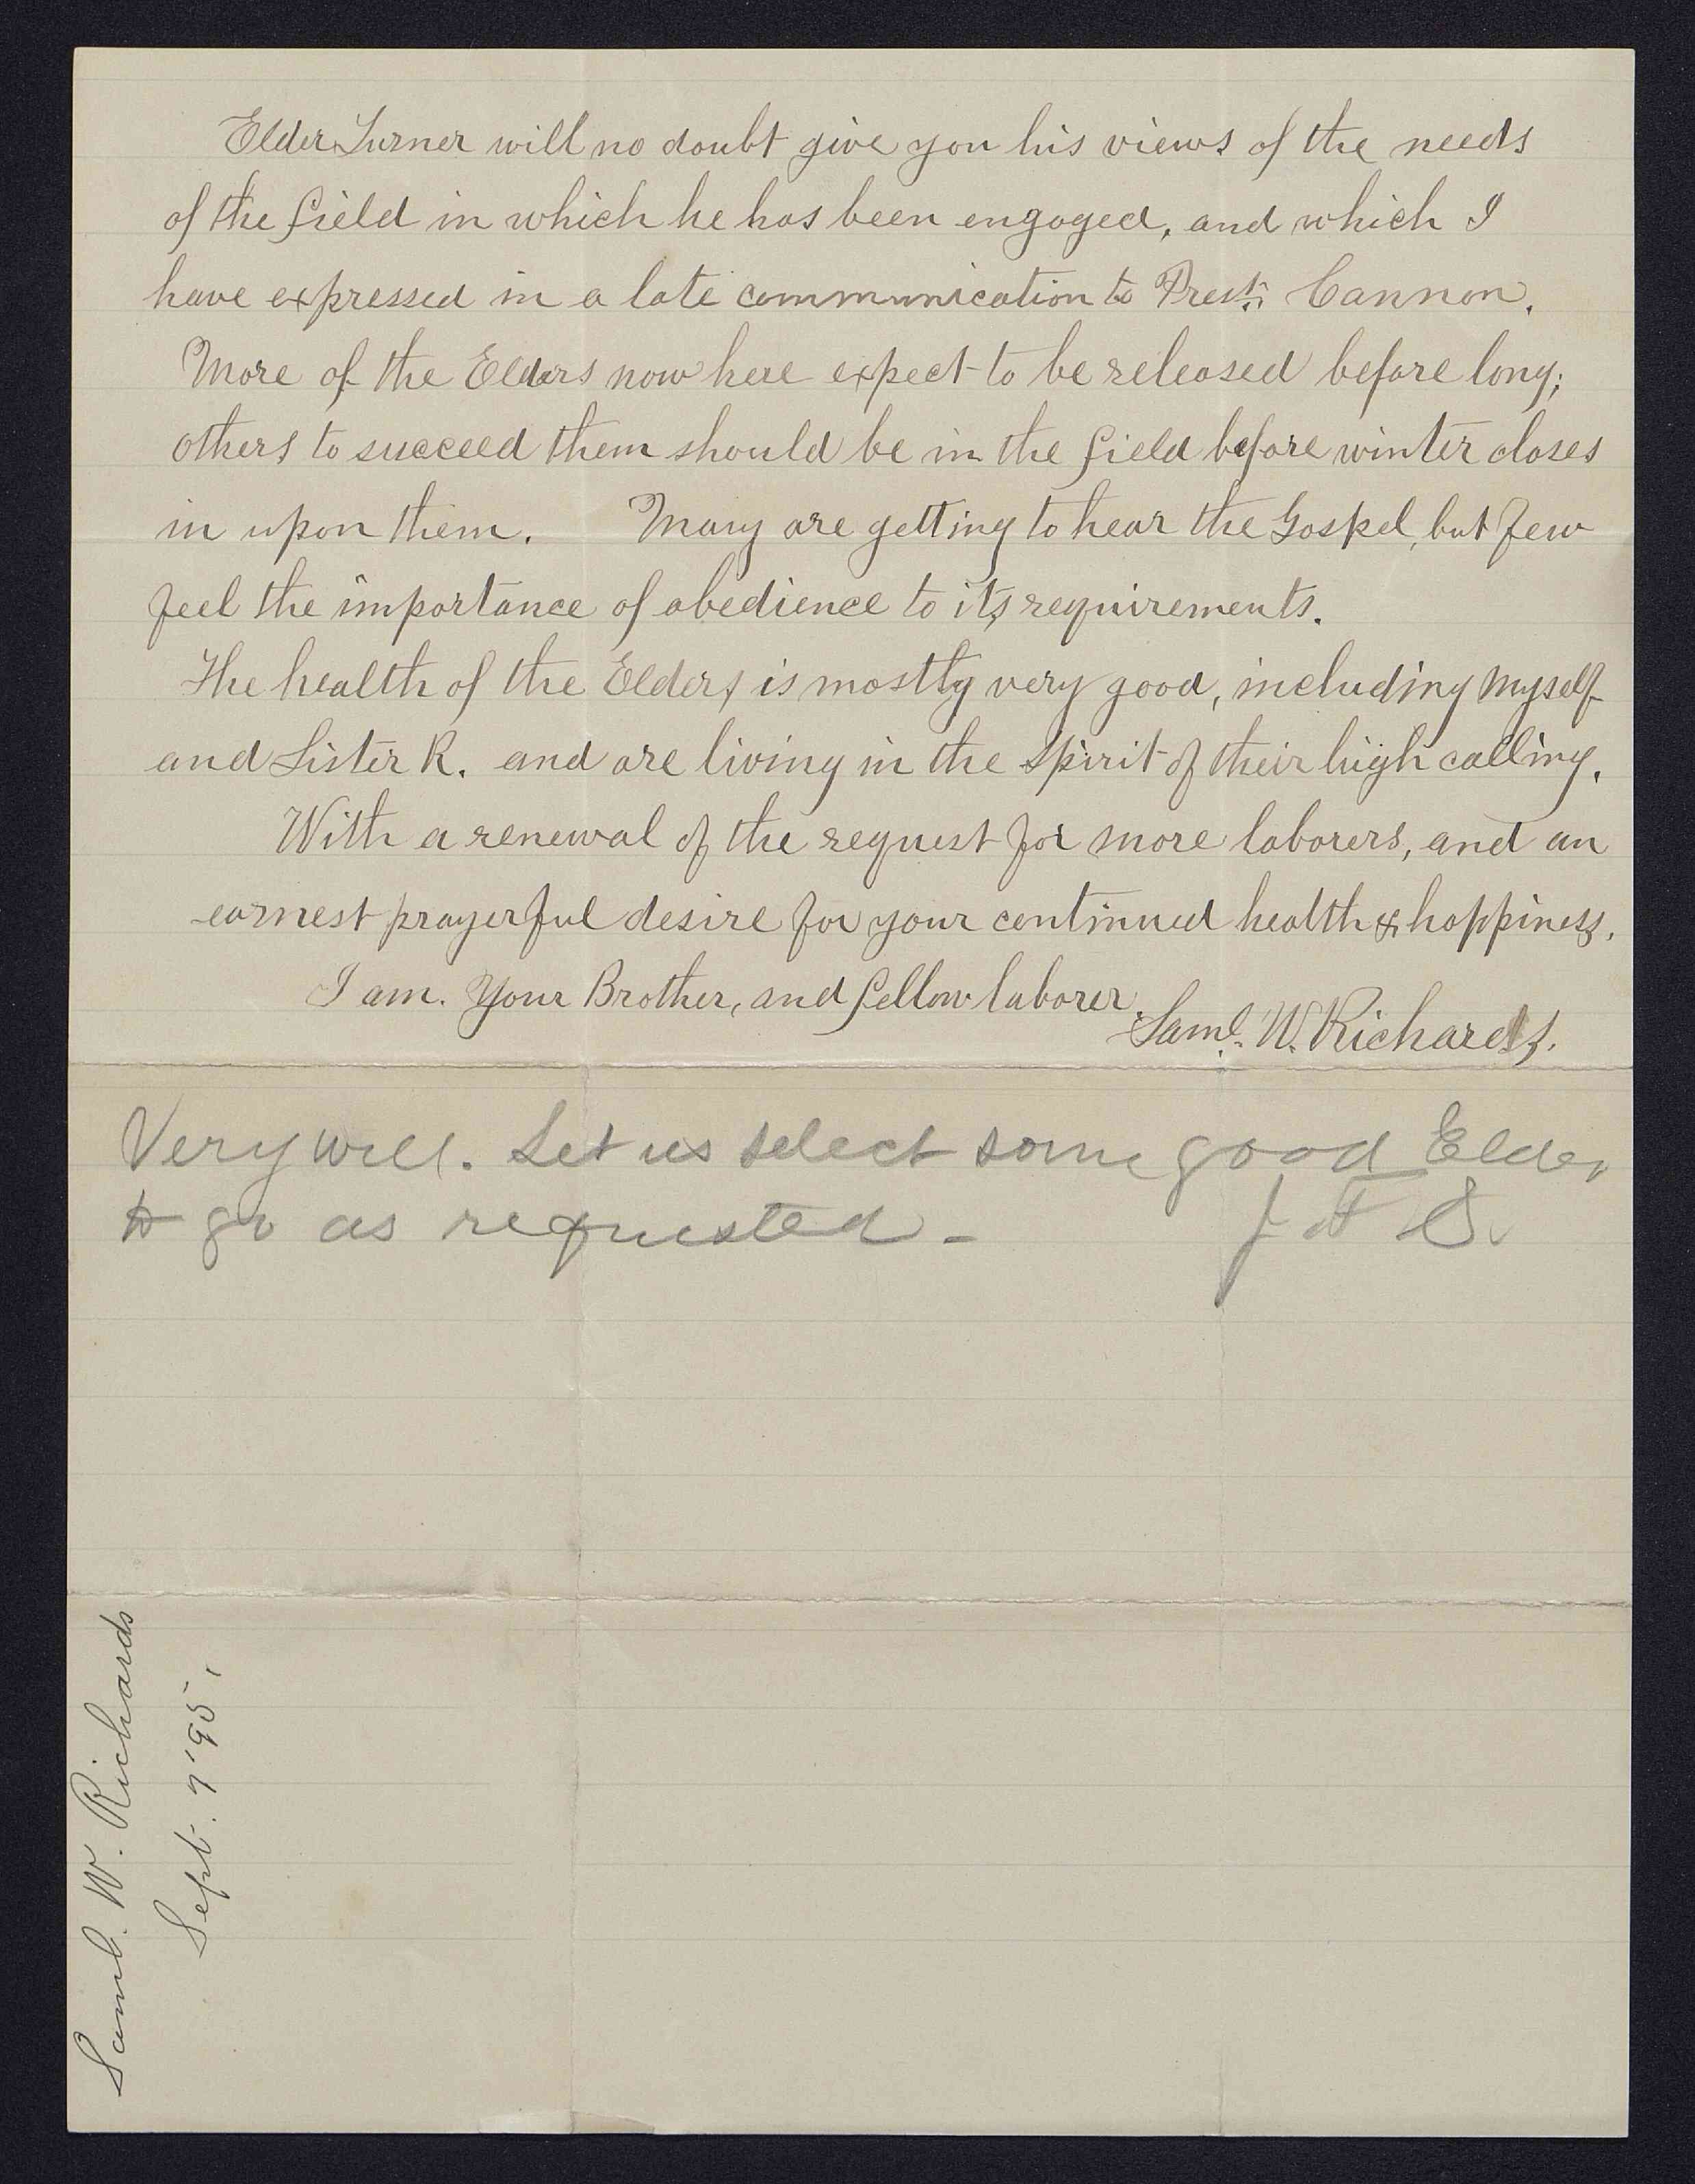 Elder Turner will no doubt give you his views of the needs
of the field in which he has been engaged, and which I
have expressed in a late communication to Prest. Cannon.
More of the Elders now here expect to be released before long;
others to succeed them should be in the field before winter closes
in upon them. Many are getting to hear the Gospel, but few
feel the importance of obedience to its requirements.
The health of the Elders is mostly very good, including myself
and Sister R. and are living in the Spirit of their high calling.
With a renewal of the request for more laborers, and an
earnest prayerful desire for your continued health & happiness.
I am. Your Brother, and fellow laborer.
Saml. W. Richards.
Very well. Let us select some good Elder
to go as requested - J F S.
Saml. W. Richards
Sept. 7 '95,